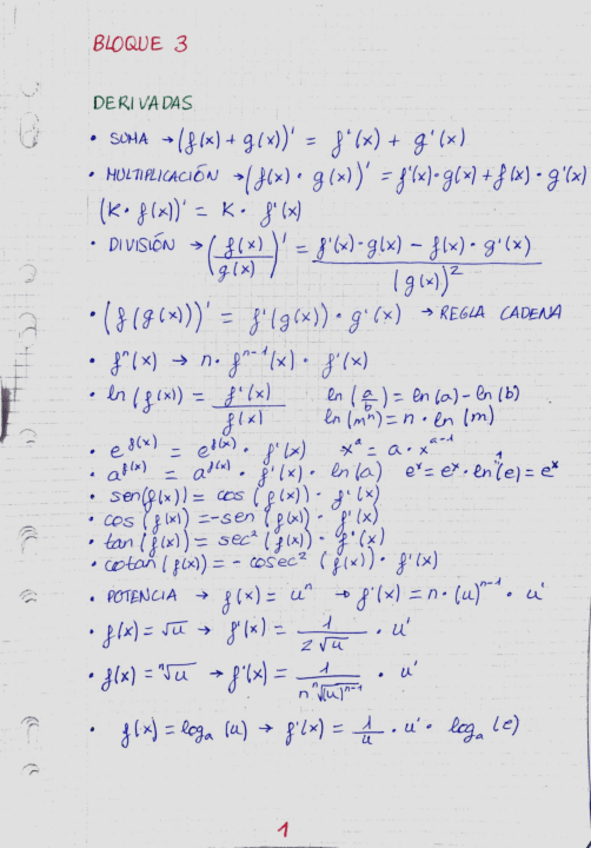 BLOQUE 3
DERIVADAS
• SUMA → (f(x) + g(x))' = f'(x) + g'(x)
• MULTIPLICACIÓN → (f(x) · g(x))' = f'(x)·g(x) + f(x)·g'(x)
(K · f(x))' = K · f'(x)
• DIVISIÓN → (f(x)/g(x))' = (f'(x)·g(x) − f(x)·g'(x))/(g(x))²
• (f(g(x)))' = f'(g(x)) · g'(x) → REGLA CADENA
• fⁿ(x) → n · fⁿ⁻¹(x) · f'(x)
• ln(f(x)) = f'(x)/f(x) ln(a/b) = ln(a) − ln(b)
ln(mⁿ) = n · ln(m)
• e^f(x) = e^f(x) · f'(x) x^a = a · x^(a-1)
• a^f(x) = a^f(x) · f'(x) · ln(a) e^x = e^x · ln(e)^1 = e^x
• sen(f(x)) = cos(f(x)) · f'(x)
• cos(f(x)) = −sen(f(x)) · f'(x)
• tan(f(x)) = sec²(f(x)) · f'(x)
• cotan(f(x)) = − cosec²(f(x)) · f'(x)
• POTENCIA → f(x) = uⁿ → f'(x) = n · (u)ⁿ⁻¹ · u'
• f(x) = √u → f'(x) = 1/(2√u) · u'
• f(x) = ⁿ√u → f'(x) = 1/(n ⁿ√(u)ⁿ⁻¹) · u'
• f(x) = logₐ(u) → f'(x) = 1/u · u' · logₐ(e)
1